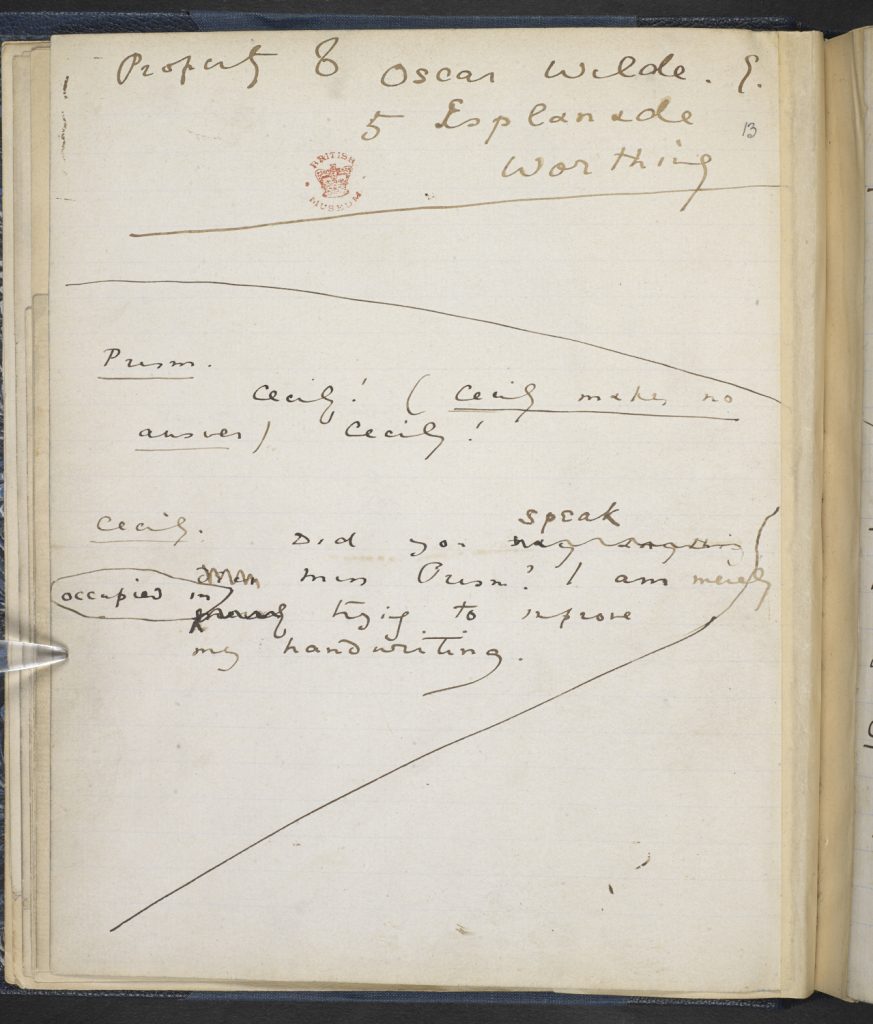 Property of Oscar Wilde. E.
5 Esplanade
13
Worthing
BRITISH MUSEUM
Prism.
Cecily! (Cecily makes no
answer) Cecily!
speak
Cecily.
Did you say anything
Miss Prism? I am merely
occupied in
trying to improve
my handwriting.